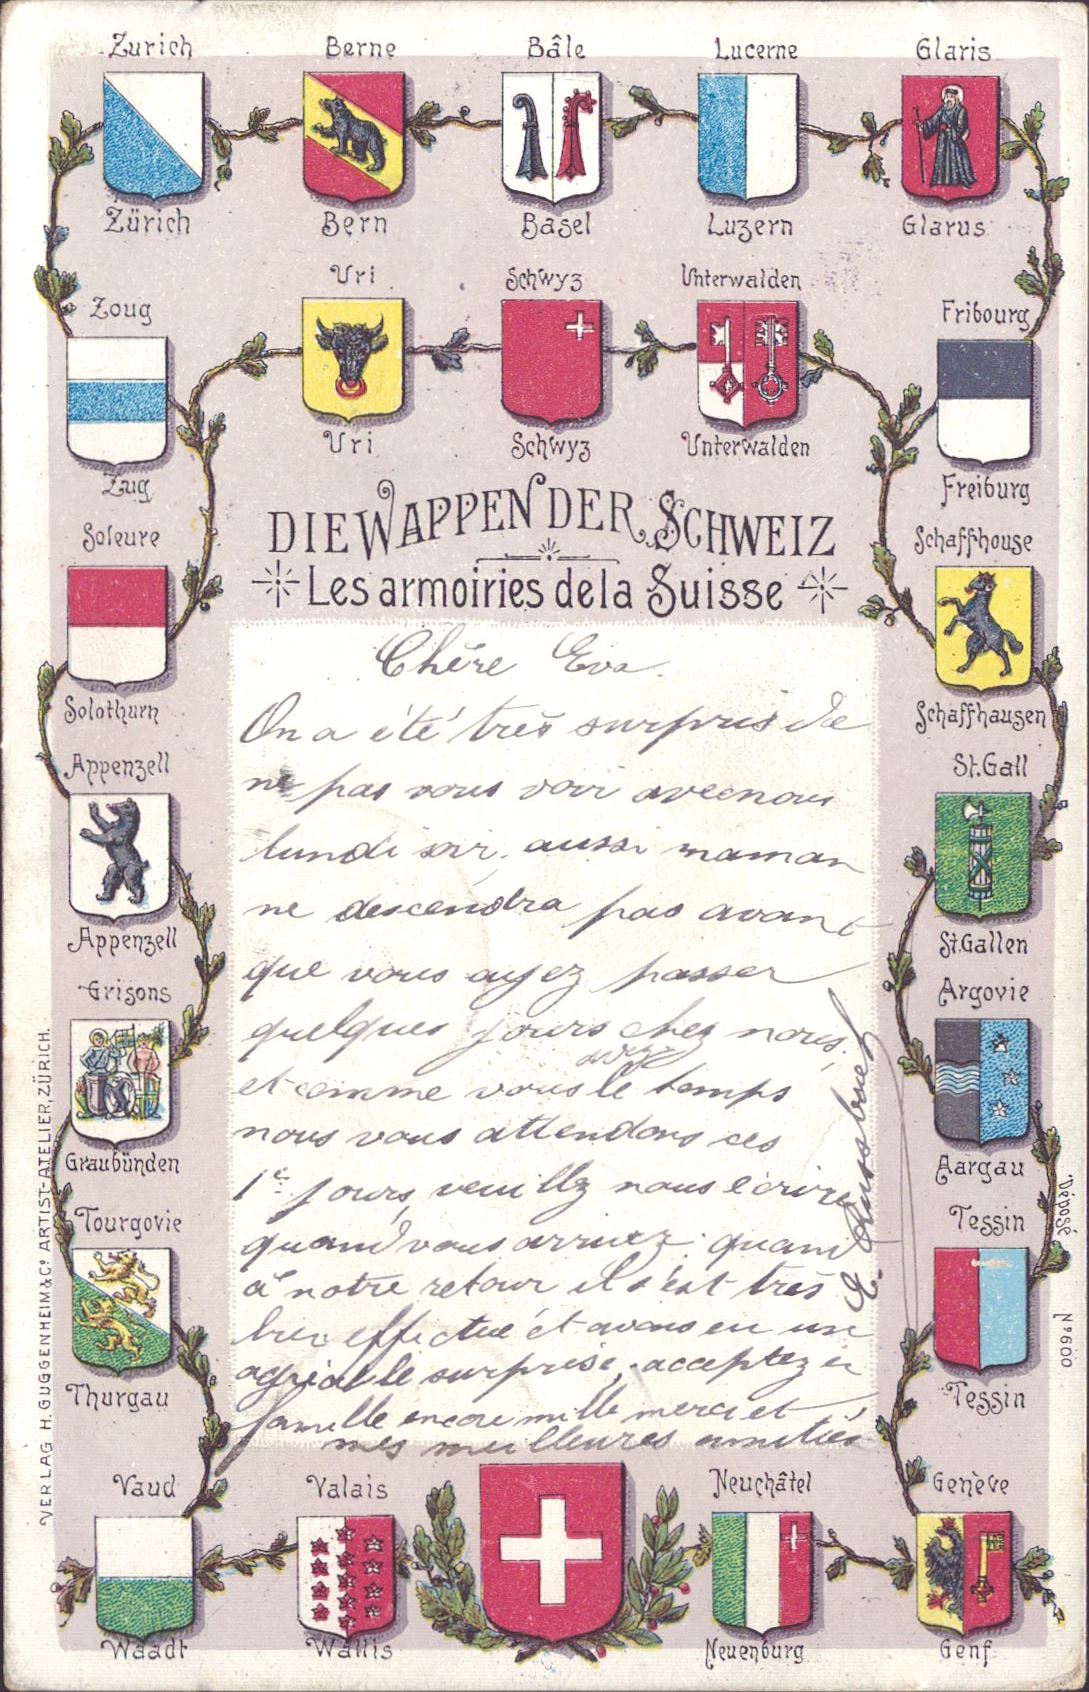 Zurich Berne Bâle Lucerne Glaris
Zürich Bern Basel Luzern Glarus
Uri Schwyz Unterwalden
Zoug Fribourg
Uri Schwyz Unterwalden
Zug Freiburg
DIE WAPPEN DER SCHWEIZ
Les armoiries de la Suisse
Soleure Schaffhouse
Solothurn Schaffhausen
Appenzell St. Gall
Appenzell St. Gallen
Grisons Argovie
Graubünden Aargau
Tourgovie Tessin
Thurgau Tessin
Chère Eva.
On a été très surpris de
ne pas vous voir avec nous
lundi soir, aussi maman
ne descendra pas avant
que vous ayez passer
quelques jours chez nous,
avez
et comme vous le temps
nous vous attendons ces
1er jours, veuillez nous écrire
quand vous arrivez. quand
à notre retour il s'est très
bien effectué et avons eu un
agréable surprise, acceptez en
famille encore mille merci et
mes meilleures amitiés
E.
Vaud Valais Neuchâtel Genève
Waadt Wallis Neuenburg Genf
VERLAG H. GUGGENHEIM & Co. ARTIST-ATELIER, ZÜRICH.
Déposé
No 600